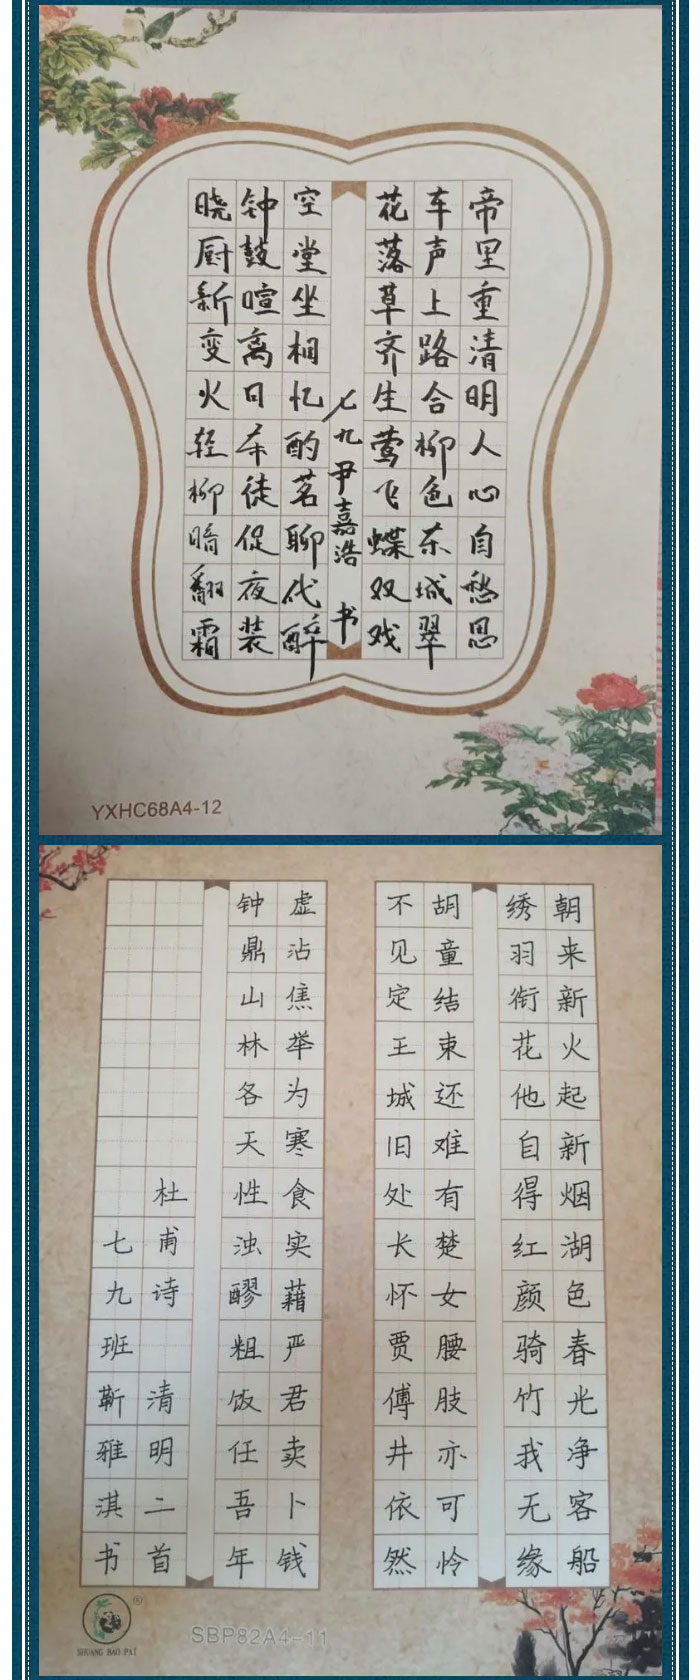 帝里重清明人心自愁思
车声上路合柳色东城翠
花落草齐生莺飞蝶双戏
七九尹嘉浩 书
空堂坐相忆酌茗聊代醉
钟鼓喧离日车徒促夜装
晓厨新变火轻柳暗翻霜
YXHC68A4-12
朝来新火起新烟湖色春光净客船
绣羽衔花他自得红颜骑竹我无缘
胡童结束还难有楚女腰肢亦可怜
不见定王城旧处长怀贾傅井依然
虚沾焦举为寒食实藉严君卖卜钱
钟鼎山林各天性浊醪粗饭任吾年
杜甫诗 清明二首
七九班靳雅淇书
SHUANG BAO PAI
SBP82A4-11